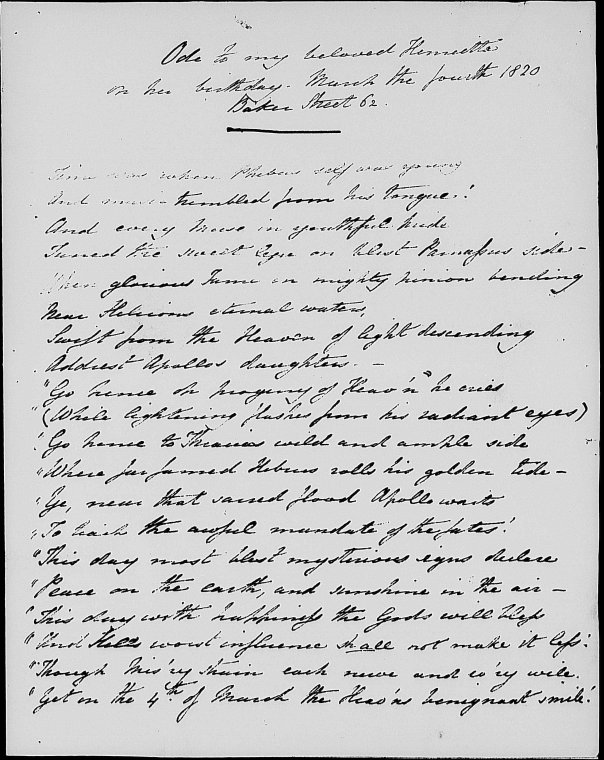 Ode to my beloved Henrietta
on her birthday. March the fourth 1820
Baker Street 62.
Time was when Phebus self was young
And music trembled from his tongue!
And every Muse in youthful pride
Tuned the sweet lyre on blest Parnassus side –
When glorious Fame on mighty pinion bending
Near Helicons eternal waters,
Swift from the Heaven of light descending
Addrest Apollos daughters. –
"Go hence oh progeny of Heav'n" he cries
"(While lightening flashes from his radiant eyes)
"Go hence to Thracias wild and ample side
"Where far famed Hebrus rolls his golden tide –
"Ye, near that sacred flood Apollo waits
"To teach the awful mandate of the fates!
"This day most blest mysterious signs declare
"Peace on the earth, and sunshine in the air –
"This day with happiness the Gods will bless
"And Hells worst influence shall not make it less!
"Though Mis'ry strain each nerve and ev'ry wile.
"Yet on the 4th. of March the Heav'ns benignant smile!